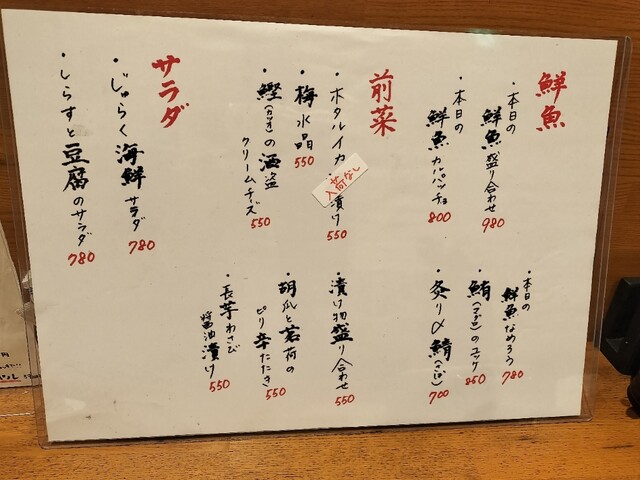 鮮魚
・本日の
鮮魚盛り合わせ
980
・本日の
鮮魚カルパッチョ
800
・本日の
鮮魚なめろう
780
・鮪(マグロ)のユッケ
850
・炙り〆鯖(さば)
700
前菜
・ホタルイカ
漬け
550
入荷なし
・梅水晶
550
・鰹(カツオ)の酒盗
クリームチーズ
550
・漬け物盛り合わせ
550
・胡瓜と茗荷の
ピリ辛たたき
550
・長芋わさび
醤油漬け
550
サラダ
・じゅらく海鮮サラダ
780
・しらすと豆腐のサラダ
780